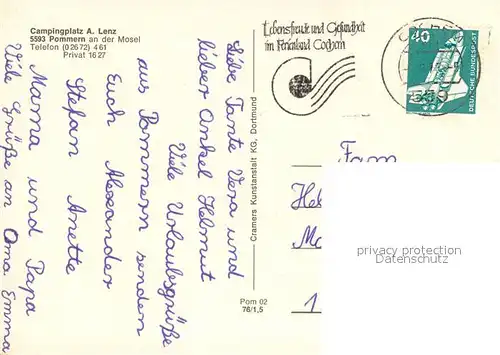 Campingplatz A. Lenz
5593 Pommern an der Mosel
Telefon (02672) 461
Privat 1627
Liebe Tante Vera und
lieber Onkel Helmut
Viele Urlaubsgrüße
aus Pommern senden
Euch Alexander
Stefan Anette
Mama und Papa
Viele Grüße an Oma Emma
Cramers Kunstanstalt KG, Dortmund
Pom 02
76/1,5
Lebensfreude und Gesundheit
im Ferienland Cochem
40
DEUTSCHE BUNDESPOST
559
Fam
Hel
Mo
1
privacy protection
Datenschutz